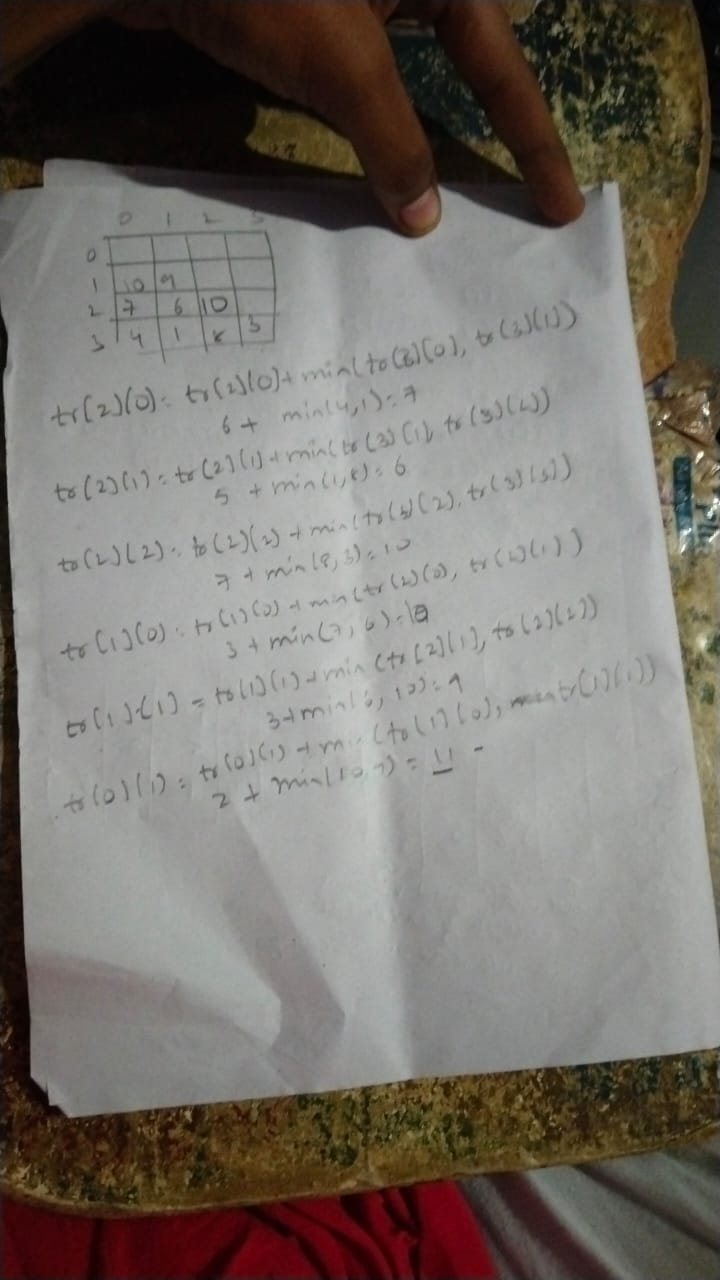 0 1 2 3
0
1 10 9
2 7 6 10
3 4 1 8 3
tr(2)(0) = tr(2)(0) + min(tr(3)(0), tr(3)(1))
6 + min(4,1) = 7
tr(2)(1) = tr(2)(1) + min(tr(3)(1), tr(3)(2))
5 + min(1,8) = 6
tr(2)(2) = tr(2)(2) + min(tr(3)(2), tr(3)(3))
7 + min(8,3) = 10
tr(1)(0) = tr(1)(0) + min(tr(2)(0), tr(2)(1))
3 + min(7,6) =
tr(1)(1) = tr(1)(1) + min(tr(2)(1), tr(2)(2))
3 + min(6, 10) = 9
tr(0)(1) = tr(0)(1) + min(tr(1)(0), tr(1)(1))
2 + min(10,9) = 11